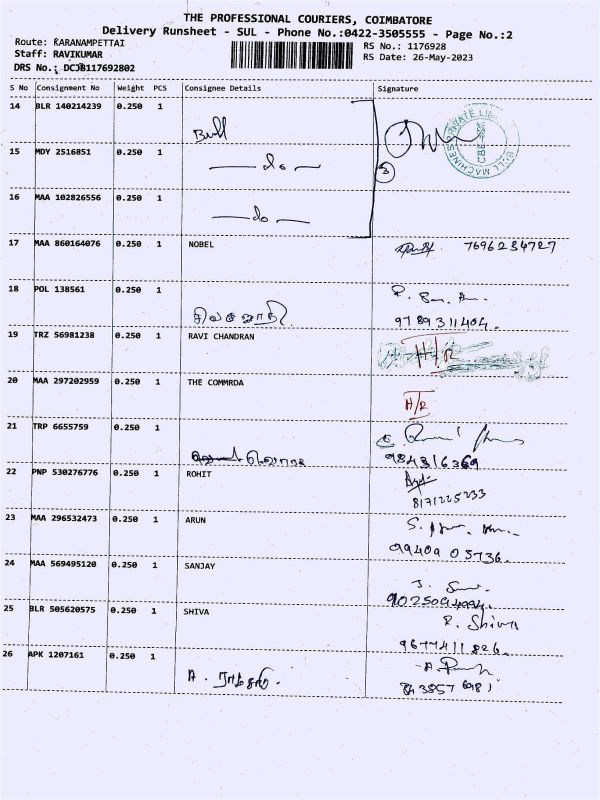 THE PROFESSIONAL COURIERS, COIMBATORE
Delivery Runsheet - SUL - Phone No.:0422-3505555 - Page No.:2
Route: KARANAMPETTAI
RS No.: 1176928
Staff: RAVIKUMAR
RS Date: 26-May-2023
DRS No.: DCJB117692802
S No Consignment No Weight PCS Consignee Details Signature
14 BLR 140214239 0.250 1 Bull
BULL MACHINES PRIVATE LIMITED
15 MDY 2516851 0.250 1 — do —
3
16 MAA 102826556 0.250 1 — do —
17 MAA 860164076 0.250 1 NOBEL 7696234727
18 POL 138561 0.250 1
9789311404.
19 TRZ 56981238 0.250 1 RAVI CHANDRAN H/R
20 MAA 297202959 0.250 1 THE COMMRDA H/R
21 TRP 6655759 0.250 1
984316369
22 PNP 530276776 0.250 1 ROHIT
8171225233
23 MAA 296532473 0.250 1 ARUN
99409 05736.
24 MAA 569495120 0.250 1 SANJAY
25 BLR 505620575 0.250 1 SHIVA R. Shiva
9677411826.
26 APK 1207161 0.250 1 A.